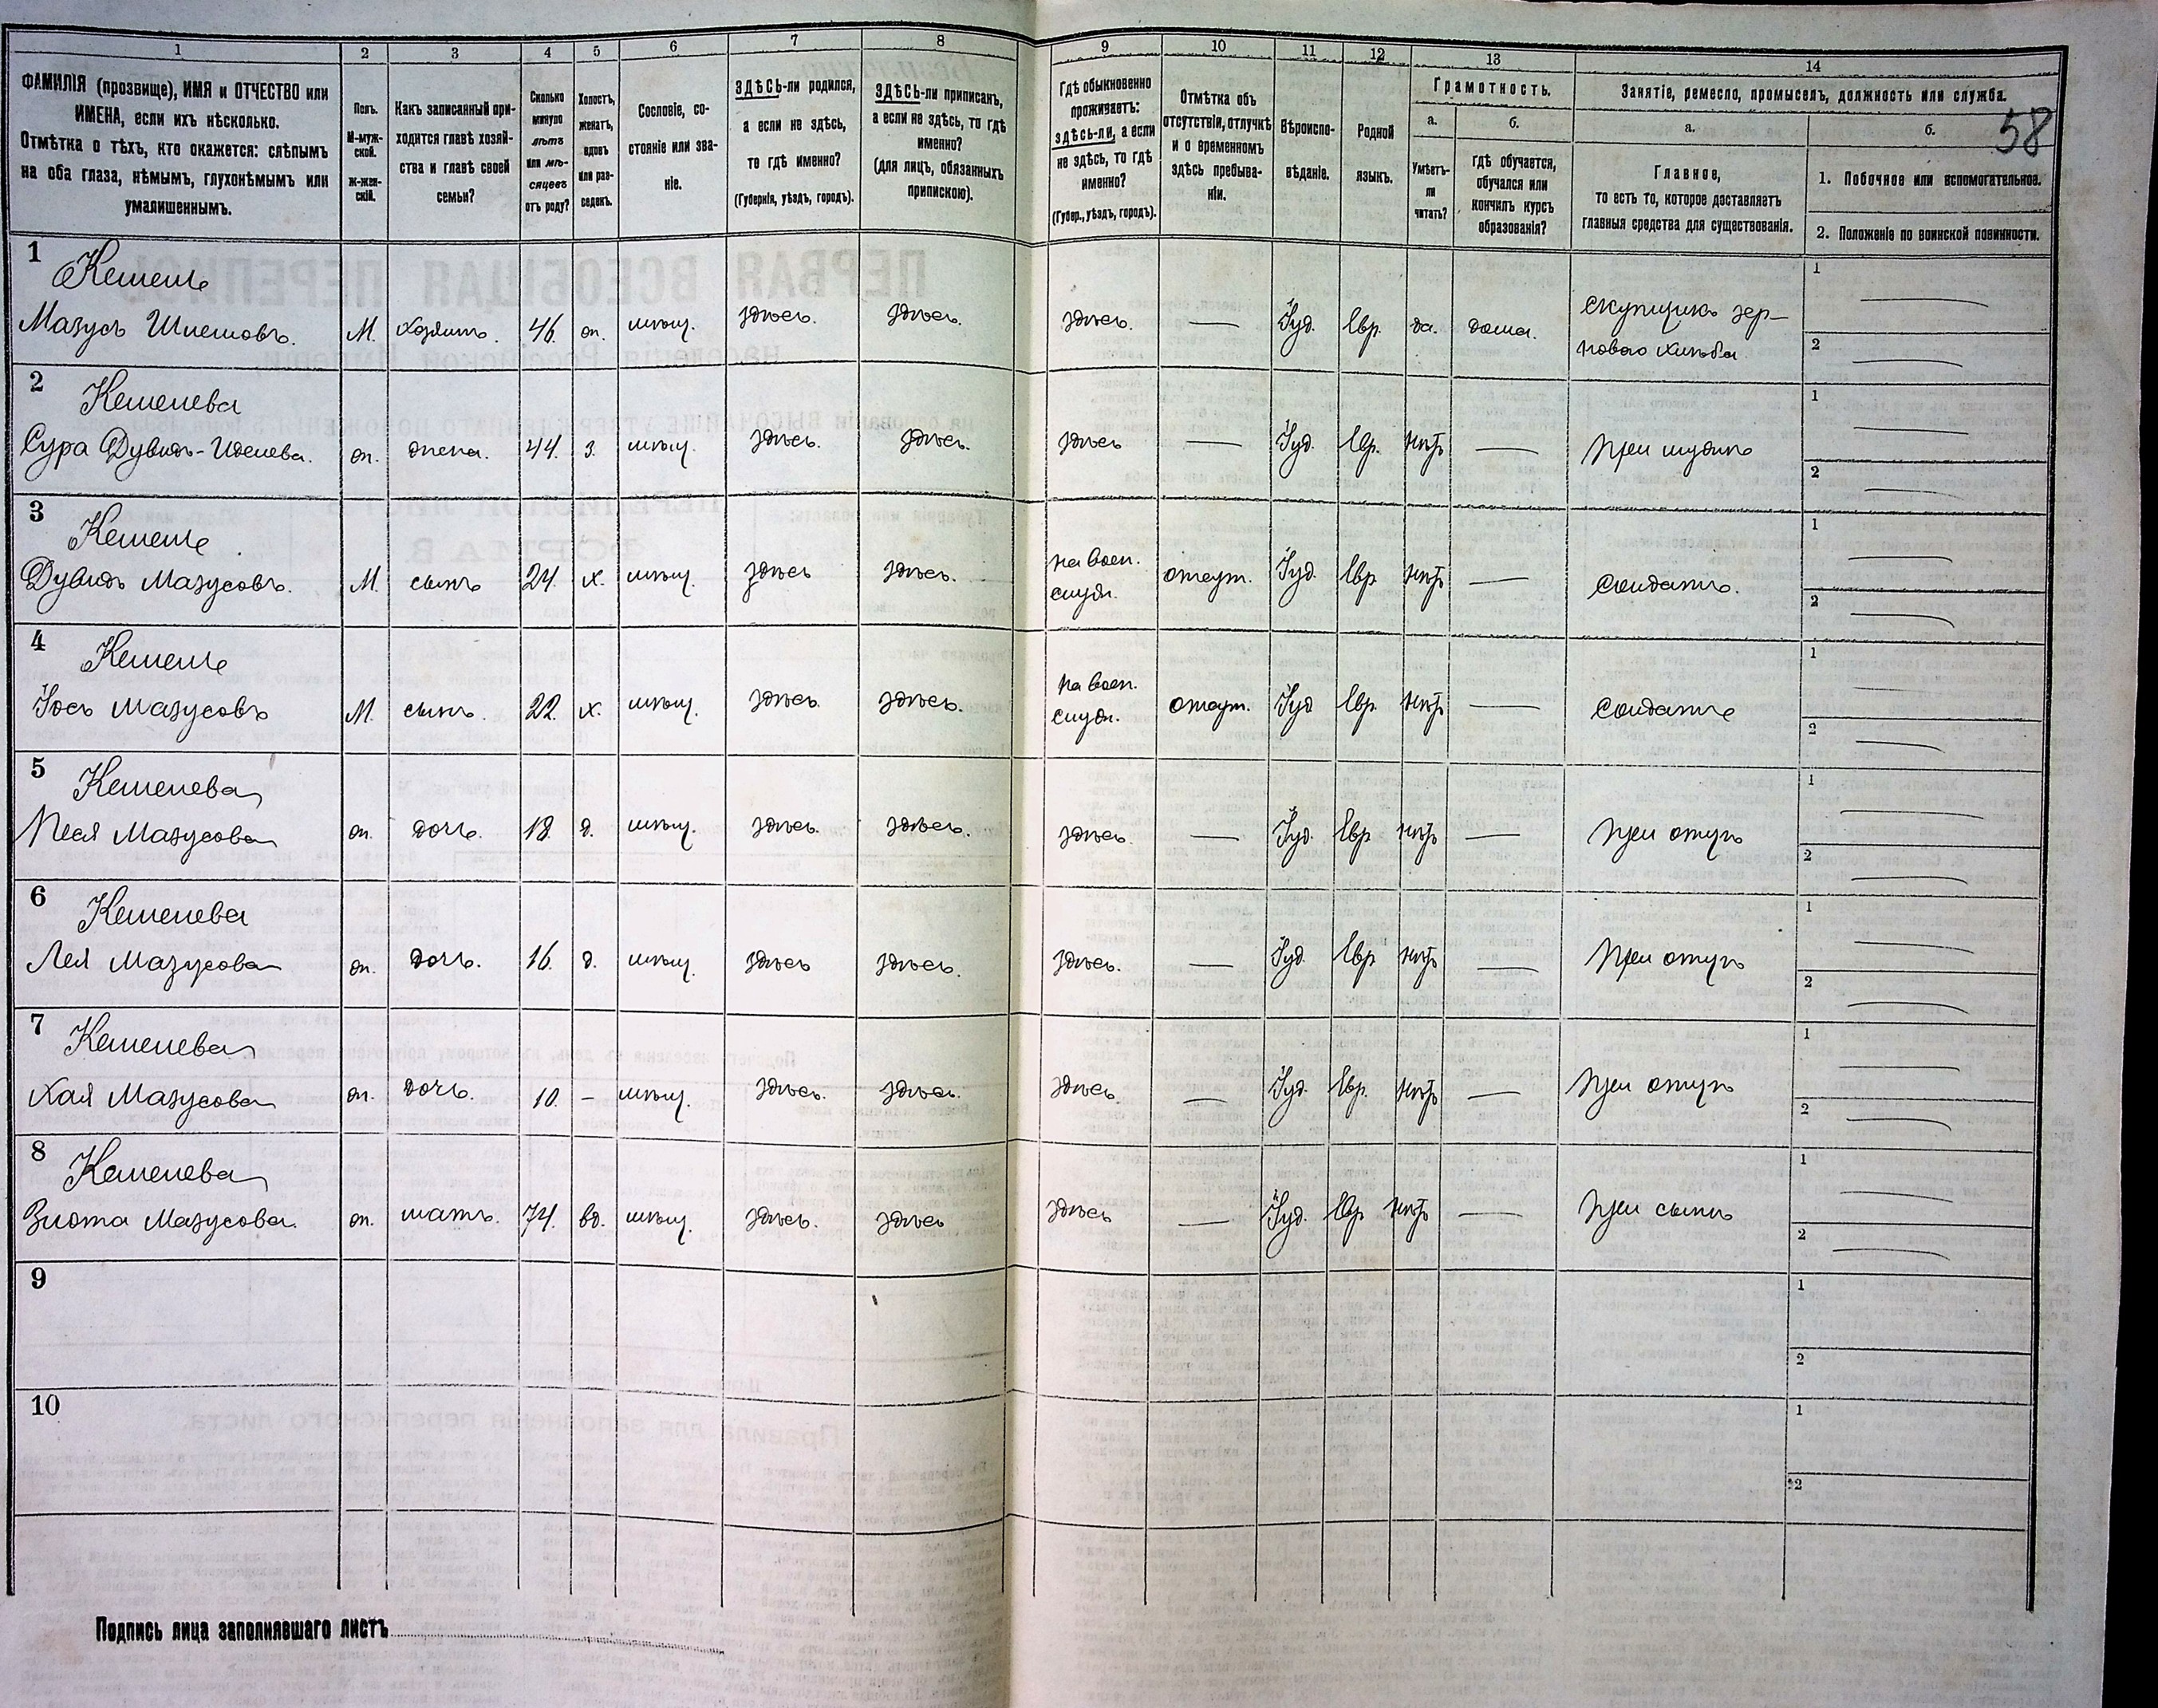 1 2 3 4 5 6 7 8 9 10 11 12 13 14
58
ФАМИЛІЯ (прозвище), ИМЯ и ОТЧЕСТВО или
ИМЕНА, если ихъ нѣсколько.
Отмѣтка о тѣхъ, кто окажется: слѣпымъ
на оба глаза, нѣмымъ, глухонѣмымъ или
умалишеннымъ.
Полъ.
М-муж-
ской.
Ж-жен-
скій.
Какъ записанный при-
ходится главѣ хозяй-
ства и главѣ своей
семьи?
Сколько
минуло
лѣтъ
или мѣ-
сяцевъ
отъ роду?
Холостъ,
женатъ,
вдовъ
или раз-
веденъ.
Сословіе, со-
стояніе или зва-
ніе.
ЗДѢСЬ-ли родился,
а если не здѣсь,
то гдѣ именно?
(Губернія, уѣздъ, городъ).
ЗДѢСЬ-ли приписанъ,
а если не здѣсь, то гдѣ
именно?
(для лицъ, обязанныхъ
припискою).
Гдѣ обыкновенно
проживаетъ:
здѣсь-ли, а если
не здѣсь, то гдѣ
именно?
(Губер., уѣздъ, городъ).
Отмѣтка объ
отсутствіи, отлучкѣ
и о временномъ
здѣсь пребыва-
ніи.
Вѣроиспо-
вѣданіе.
Родной
языкъ.
Грамотность.
а.
Умѣетъ-
ли
читать?
б.
гдѣ обучается,
обучался или
кончилъ курсъ
образованія?
Занятіе, ремесло, промыселъ, должность или служба.
а.
Главное,
то есть то, которое доставляетъ
главныя средства для существованія.
б.
1. Побочное или вспомогательное.
2. Положеніе по воинской повинности.
1 Кешель
Мазусъ Шлемовъ. М. хозяинъ. 46. мѣщ. здѣсь. здѣсь. здѣсь. — Іуд. Евр. да. дома. скупщикъ зер-
новаго хлѣба 1 — 2 —
2 Кешелева
Сура Дувидъ- жена. 44. з. мѣщ. здѣсь. здѣсь. здѣсь — Іуд. Евр. нѣтъ — при мужѣ 1 — 2 —
3 Кешель
Дувидъ Мазусовъ. М. сынъ 24. х. мѣщ. здѣсь здѣсь. на воен.
служ. отсут. Іуд. Евр. нѣтъ — солдатъ. 1 — 2 —
4 Кешель
Іось Мазусовъ М. сынъ. 22. х. мѣщ. здѣсь. здѣсь. на воен.
служ. отсут. Іуд Евр. нѣтъ — солдатъ 1 — 2 —
5 Кешелева
Песя Мазусова ж. дочь. 18. д. мѣщ. здѣсь. здѣсь. здѣсь. — Іуд. Евр. нѣтъ — при отцѣ 1 — 2 —
6 Кешелева
Лея Мазусова ж. дочь. 16. д. мѣщ. здѣсь здѣсь. здѣсь. — Іуд. Евр нѣтъ — при отцѣ 1 — 2 —
7 Кешелева
Хая Мазусова ж. дочь. 10. — мѣщ. здѣсь. здѣсь. здѣсь. — Іуд. Евр. нѣтъ — при отцѣ 1 — 2 —
8 Кешелева
Злота Мазусова. ж. мать. 74. вд. мѣщ. здѣсь. здѣсь здѣсь — Іуд. Евр нѣтъ — при сынѣ 1 — 2 —
9 1 2
10 1 2
Подпись лица заполнявшаго листъ